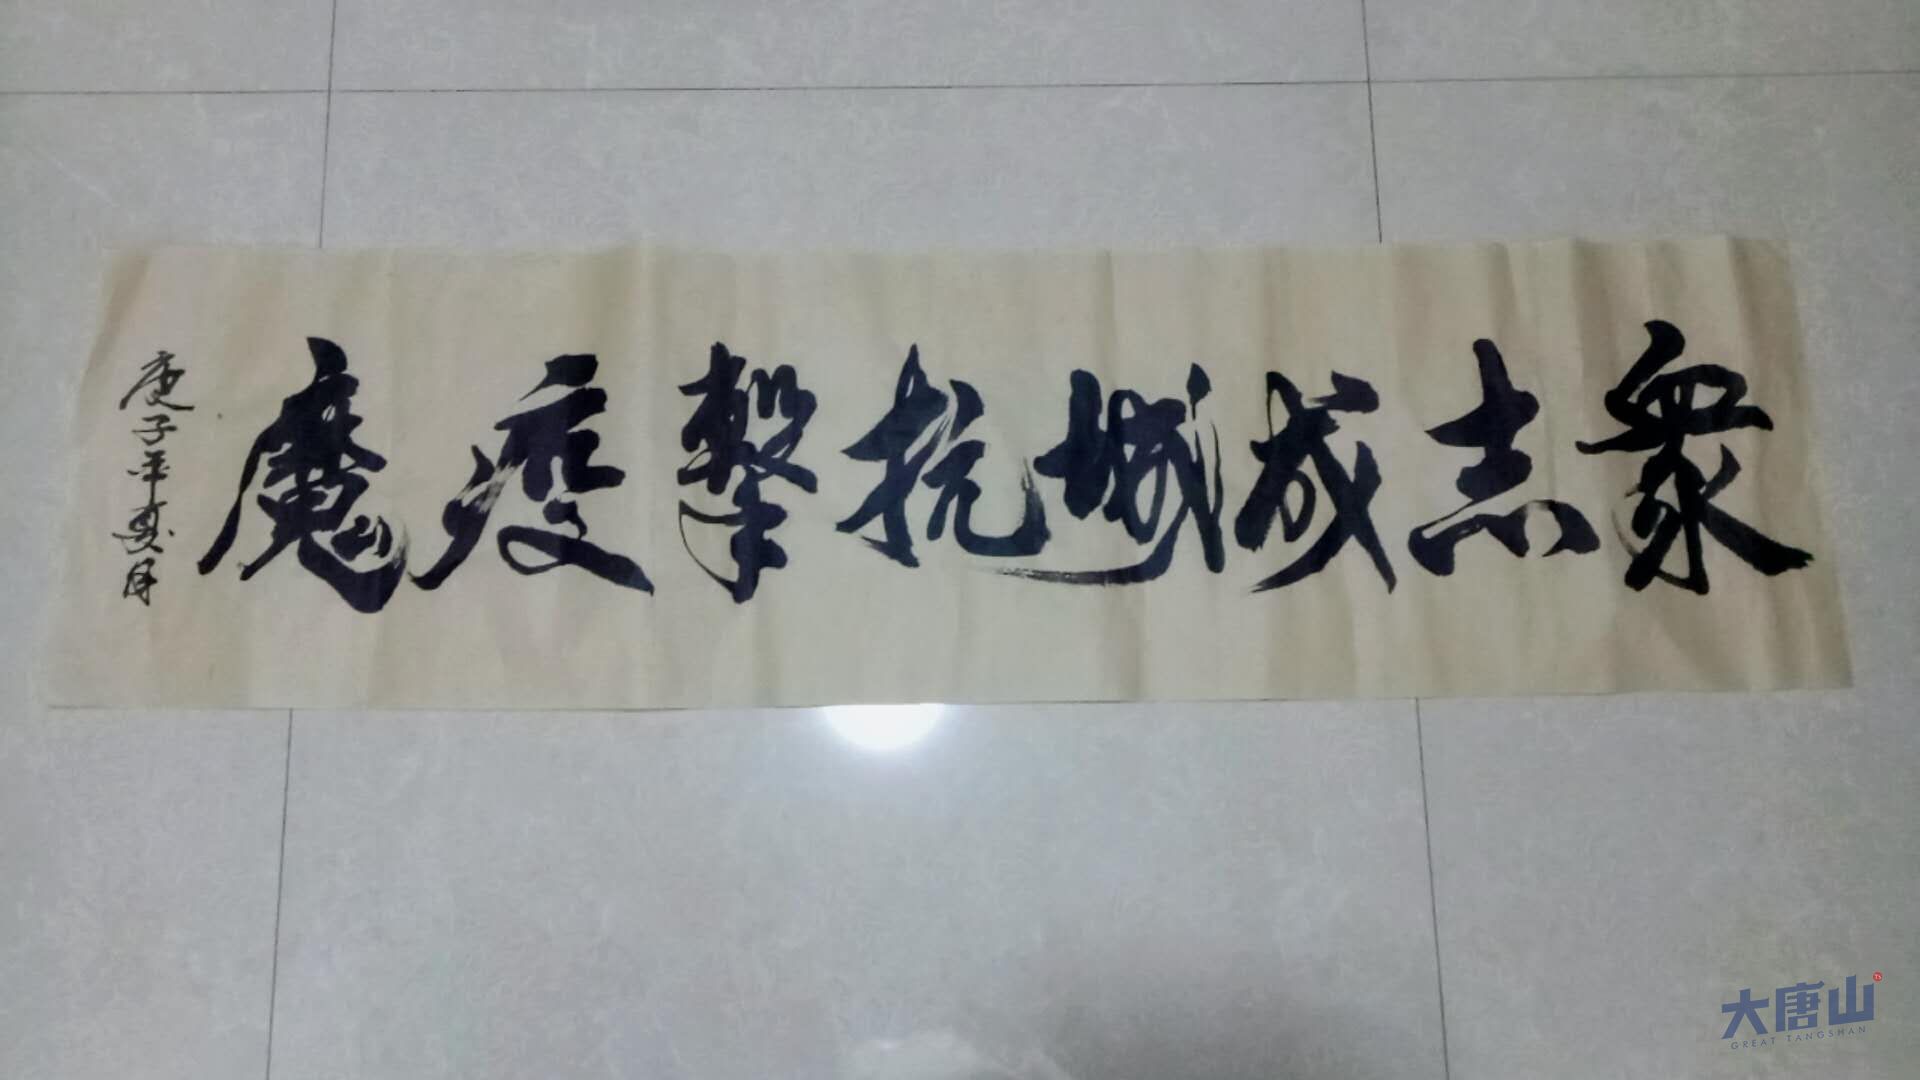 眾志成城抗擊疫魔
庚子年夏月
大唐山
GREAT TANGSHAN
TS